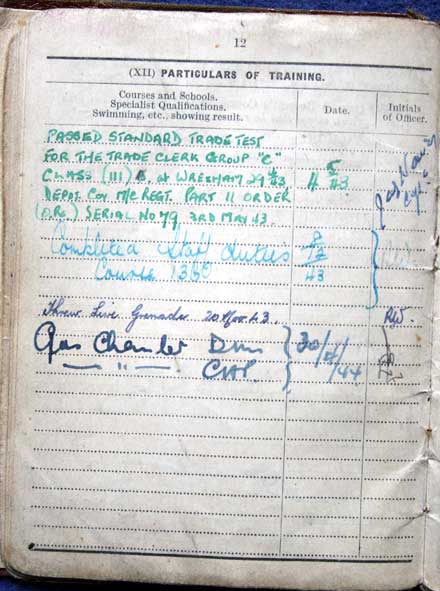 12
(XII) PARTICULARS OF TRAINING.
Courses and Schools.
Specialist Qualifications.
Swimming, etc., showing result.
Date.
Initials
of Officer.
PASSED STANDARD TRADE TEST
FOR THE TRADE CLERK GROUP "C"
CLASS (III) at WREXHAM 29 43
DEPOT. COY M/C REGT. PART II ORDER
(O.R.) SERIAL NO 79 3RD MAY 43
4 5 43
Completed Staff Duties
Course 1360
8
12
43
Threw Live Grenades. 20 Nov. 43.
Gas Chamber
— " —
30/4/
/44